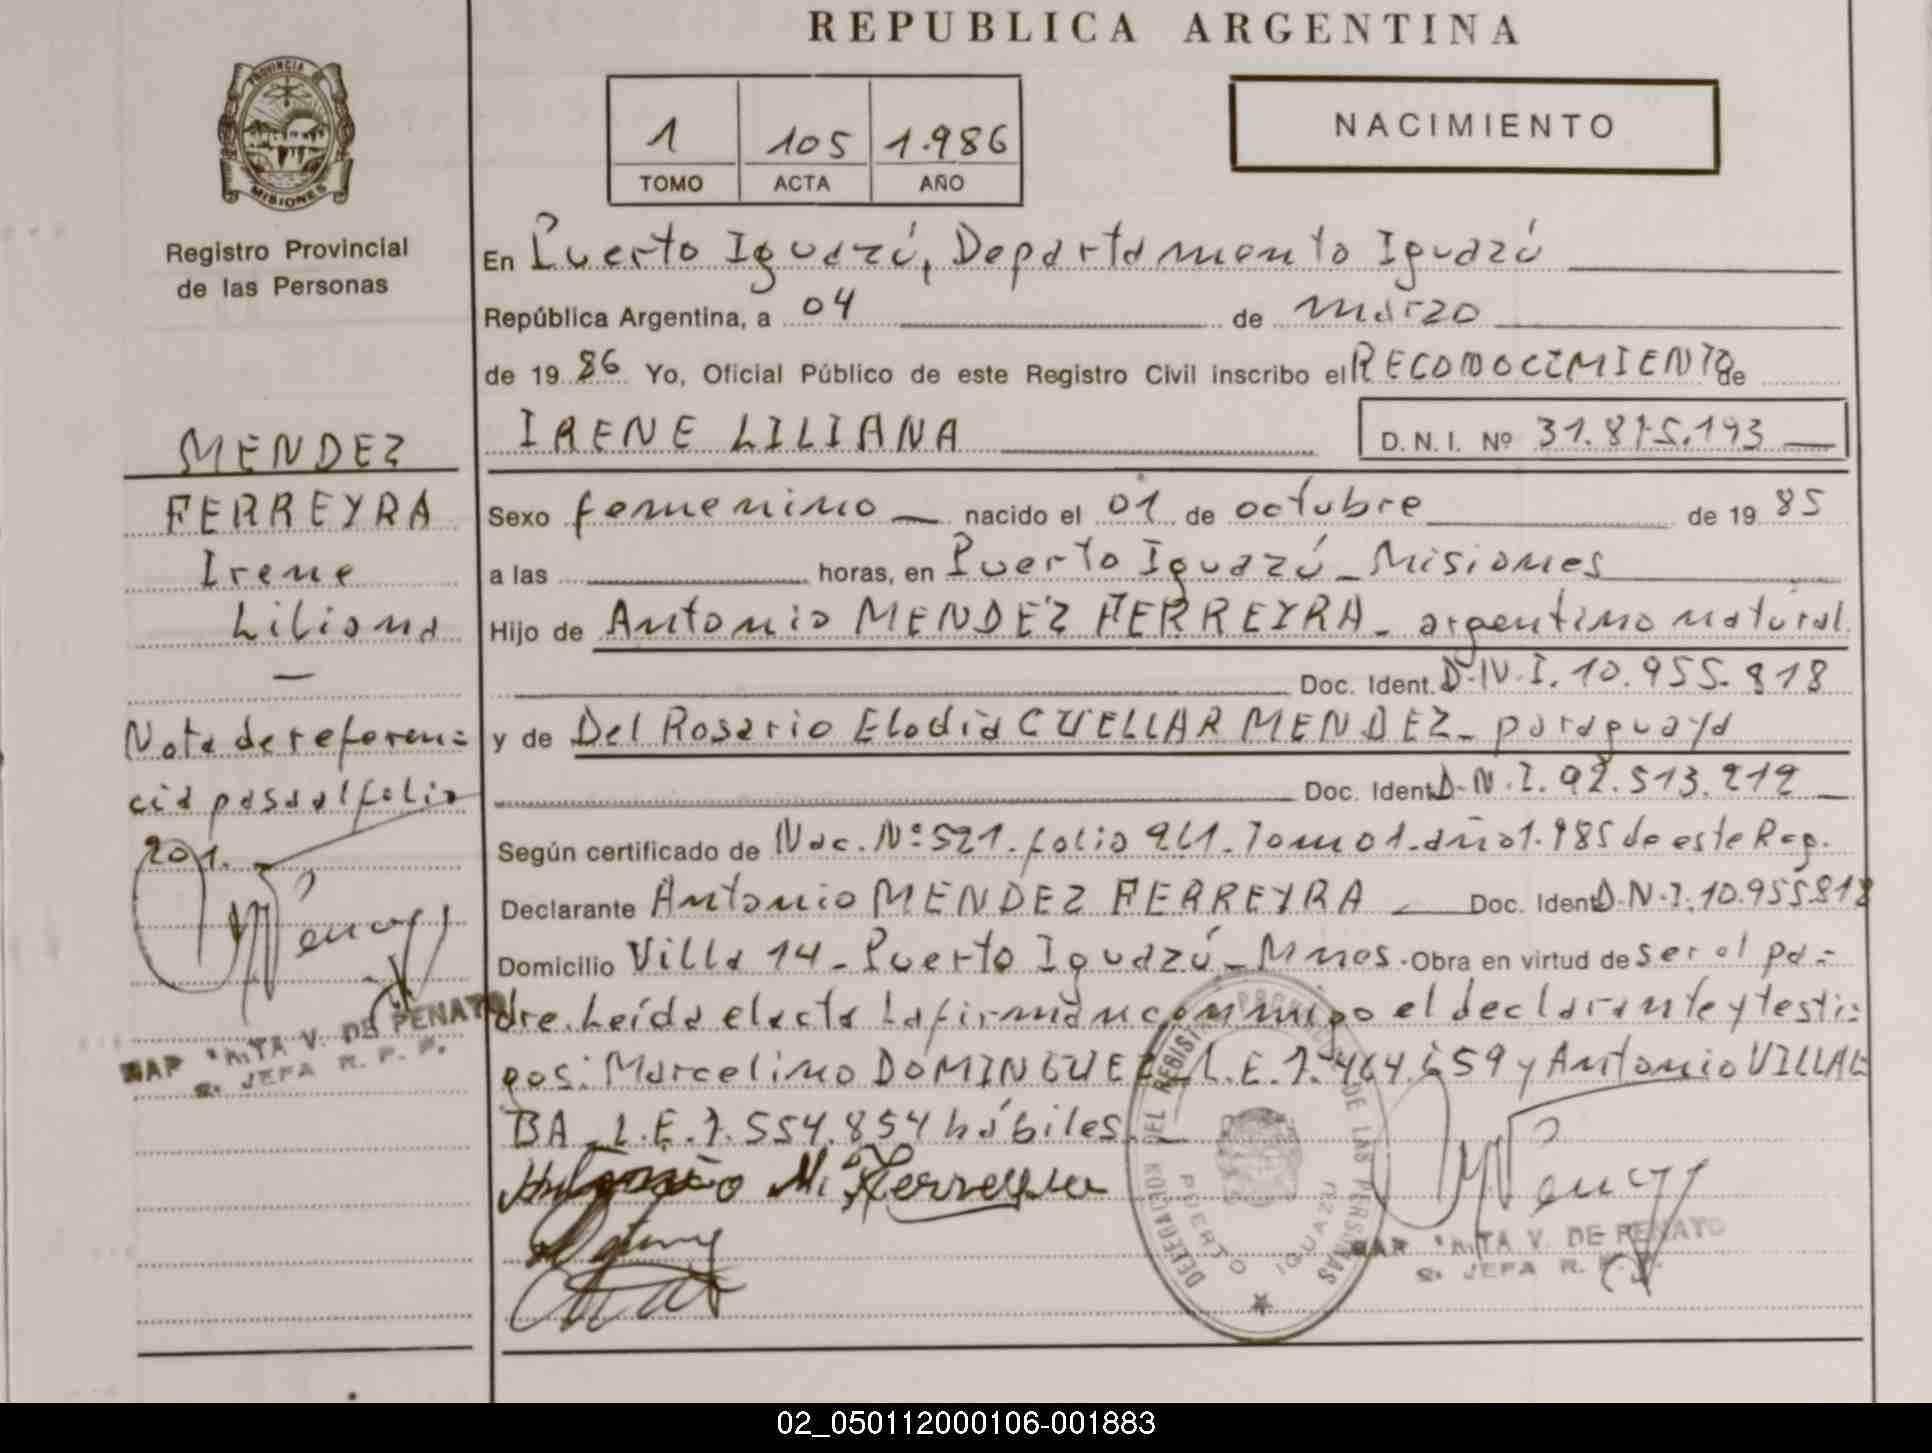 REPUBLICA ARGENTINA
PROVINCIA
MISIONES
Registro Provincial
de las Personas
1 105 1.986
TOMO ACTA AÑO
NACIMIENTO
En Puerto Iguazú, Departamento Iguazú
República Argentina, a 04 de marzo
de 1986 Yo, Oficial Público de este Registro Civil inscribo el RECONOCIMIENTO de
IRENE LILIANA D.N.I. Nº 31.815.193
MENDEZ
FERREYRA
Irene
Liliana
—
Nota de referen=
cia pasa al folio
201.
Sexo femenino nacido el 01 de octubre de 1985
a las horas, en Puerto Iguazú - Misiones
Hijo de Antonio MENDEZ FERREYRA - argentino natural.
Doc. Ident. D.N.I. 10.955.818
y de Del Rosario Elodia CUELLAR MENDEZ - paraguaya
Doc. Ident. D.N.I. 92.513.212
Según certificado de Nac. Nº 521. folio 261. Tomo 1. año 1.985 de este Reg.
Declarante Antonio MENDEZ FERREYRA Doc. Ident. D.N.I. 10.955.818
Domicilio Villa 14 - Puerto Iguazú - Mnes. Obra en virtud de ser el pa=
dre. Leída el acta la firman conmigo el declarante y testi=
gos: Marcelino DOMINGUEZ L.E. 7.464.659 y Antonio VILLAL
BA - L.E. 7.554.854 hábiles. -
Antonio M. Ferreyra
DELEGACION DEL REGISTRO PROVINCIAL DE LAS PERSONAS
PUERTO IGUAZU
V. DE PENAYO
JEFA R. P. P.
V. DE PENAYO
JEFA R. P. P.
02_050112000106-001883